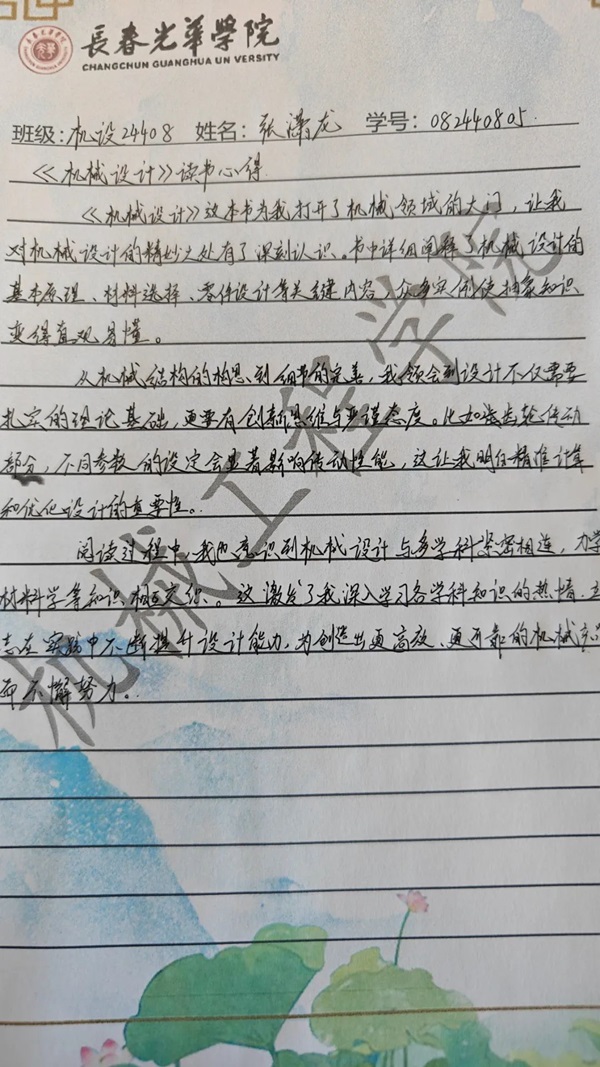 長春光華學院
CHANGCHUN GUANGHUA UN VERSITY
班级:机设24408 姓名:张潇龙 学号:082440805.
《机械设计》读书心得
《机械设计》这本书为我打开了机械领域的大门，让我
对机械设计的精妙之处有了深刻认识。书中详细阐释了机械设计的
基本原理、材料选择、零件设计等关键内容，众多实例使抽象知识
变得直观易懂。
从机械结构的构思到细节的完善，我领会到设计不仅需要
扎实的理论基础，更要有创新思维与严谨态度。比如齿轮传动
部分，不同参数的设定会显著影响传动性能，这让我明白精准计算
和优化设计的重要性。
阅读过程中，我也意识到机械设计与多学科紧密相连，力学
材料学等知识相互交织。这激发了我深入学习各学科知识的热情，立
志在实践中不断提升设计能力，为创造出更高效、更可靠的机械产品
而不懈努力。
机械工程学院